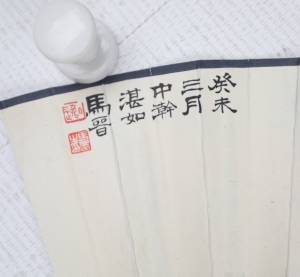 癸未
三月
中澣
湛如
馬晉